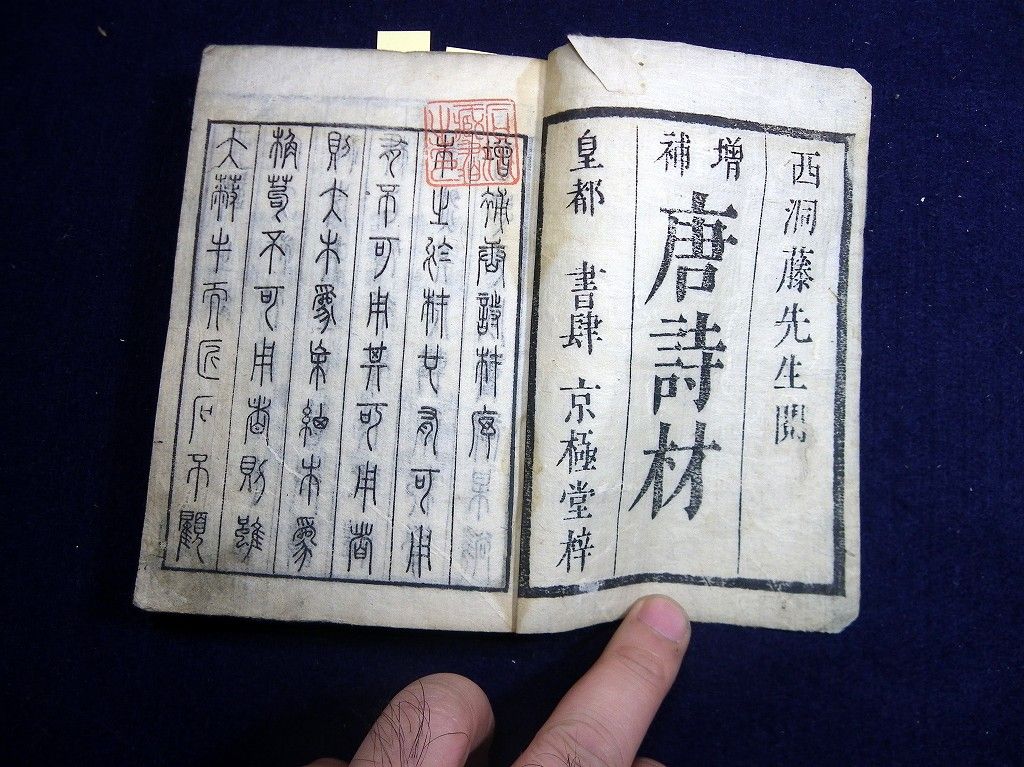 西洞藤先生閲
增補
唐詩材
皇都 書肆 京極堂梓
增補唐詩材序
木之於材也有可用
有不可用其可用者
則大木爲杗細木爲
桷苟不可用者則雖
大蔽牛而匠石不顧